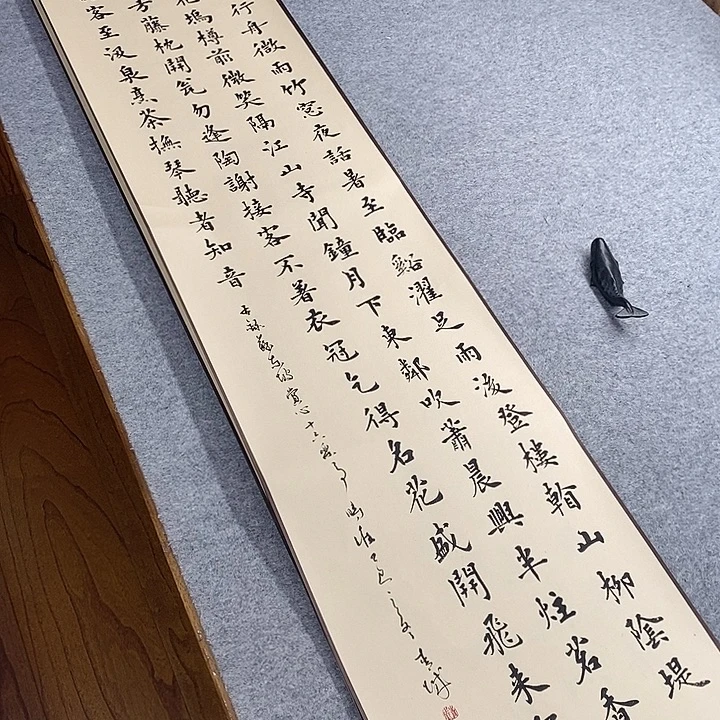 行舟微雨竹窓夜話暑至臨谿濯足雨後登樓看山柳陰堤
花塢樽前微笑隔江山寺聞鐘月下東鄰吹蕭晨興半炷茗香
方藤枕開瓮勿逢陶謝接客不著衣冠乞得名花盛開飛來
客至汲泉烹茶撫琴聽者知音
蘇東坡賞心十六樂事時維